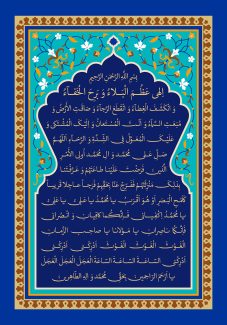 بِسْمِ اللَّهِ الرَّحْمَنِ الرَّحِيمِ
إِلَهِي عَظُمَ الْبَلَاءُ وَ بَرِحَ الْخَفَاءُ
وَ انْكَشَفَ الْغِطَاءُ وَ انْقَطَعَ الرَّجَاءُ وَ ضَاقَتِ الْأَرْضُ وَ
مُنِعَتِ السَّمَاءُ وَ أَنْتَ الْمُسْتَعَانُ وَ إِلَيْكَ الْمُشْتَكَى وَ
عَلَيْكَ الْمُعَوَّلُ فِي الشِّدَّةِ وَ الرَّخَاءِ اللَّهُمَّ
صَلِّ عَلَى مُحَمَّدٍ وَ آلِ مُحَمَّدٍ أُولِي الْأَمْرِ
الَّذِينَ فَرَضْتَ عَلَيْنَا طَاعَتَهُمْ وَ عَرَّفْتَنَا
بِذَلِكَ مَنْزِلَتَهُمْ فَفَرِّجْ عَنَّا بِحَقِّهِمْ فَرَجاً عَاجِلاً قَرِيباً
كَلَمْحِ الْبَصَرِ أَوْ هُوَ أَقْرَبُ يَا مُحَمَّدُ يَا عَلِيُّ يَا عَلِيُّ
يَا مُحَمَّدُ اكْفِيَانِي فَإِنَّكُمَا كَافِيَانِ وَ انْصُرَانِي
فَإِنَّكُمَا نَاصِرَانِ يَا مَوْلَانَا يَا صَاحِبَ الزَّمَانِ
الْغَوْثَ الْغَوْثَ الْغَوْثَ أَدْرِكْنِي أَدْرِكْنِي
أَدْرِكْنِي السَّاعَةَ السَّاعَةَ السَّاعَةَ الْعَجَلَ الْعَجَلَ الْعَجَلَ
يَا أَرْحَمَ الرَّاحِمِينَ بِحَقِّ مُحَمَّدٍ وَ آلِهِ الطَّاهِرِينَ